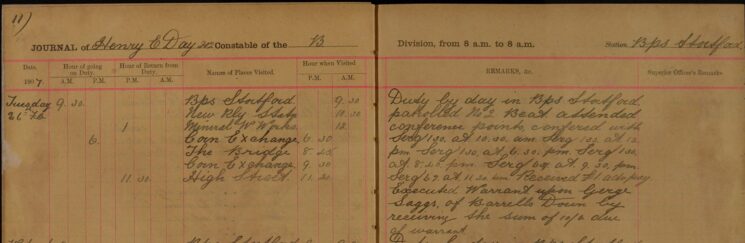 11)
JOURNAL of Henry E Day 212 Constable of the B Division, from 8 a.m. to 8 a.m. Station, Bps Stortford
Date, 1907. Hour of going on Duty. A.M. P.M. Hour of Return from Duty. P.M. A.M. Names of Places Visited. Hour when Visited P.M. A.M. REMARKS, &c. Superior Officer's Remarks
Tuesday 9. 30 Bps Stortford 9. 30 Duty by day in Bps Stortford
26 Feb New Rly Statn 10. 30 patrolled No 2 Beat attended
1 Mineral W Works 12 conference points confered with
6. Corn Exchange 6. 30 Serg 130, at 10.30 am Serg 130 at 12
The Bridge 8. 25 pm Serg 130 at 6.30 pm. Serg
Corn Exchange 9. 30 at 8.25 pm Serg at 9.30 pm.
11. 30 High Street 11. 20 Serg at 11.20 pm Received
Executed Warrant upon Gerge
Saggs, of Barrells Down by
receiving the sum of 10/6 due
of warrant
Bps Stortford